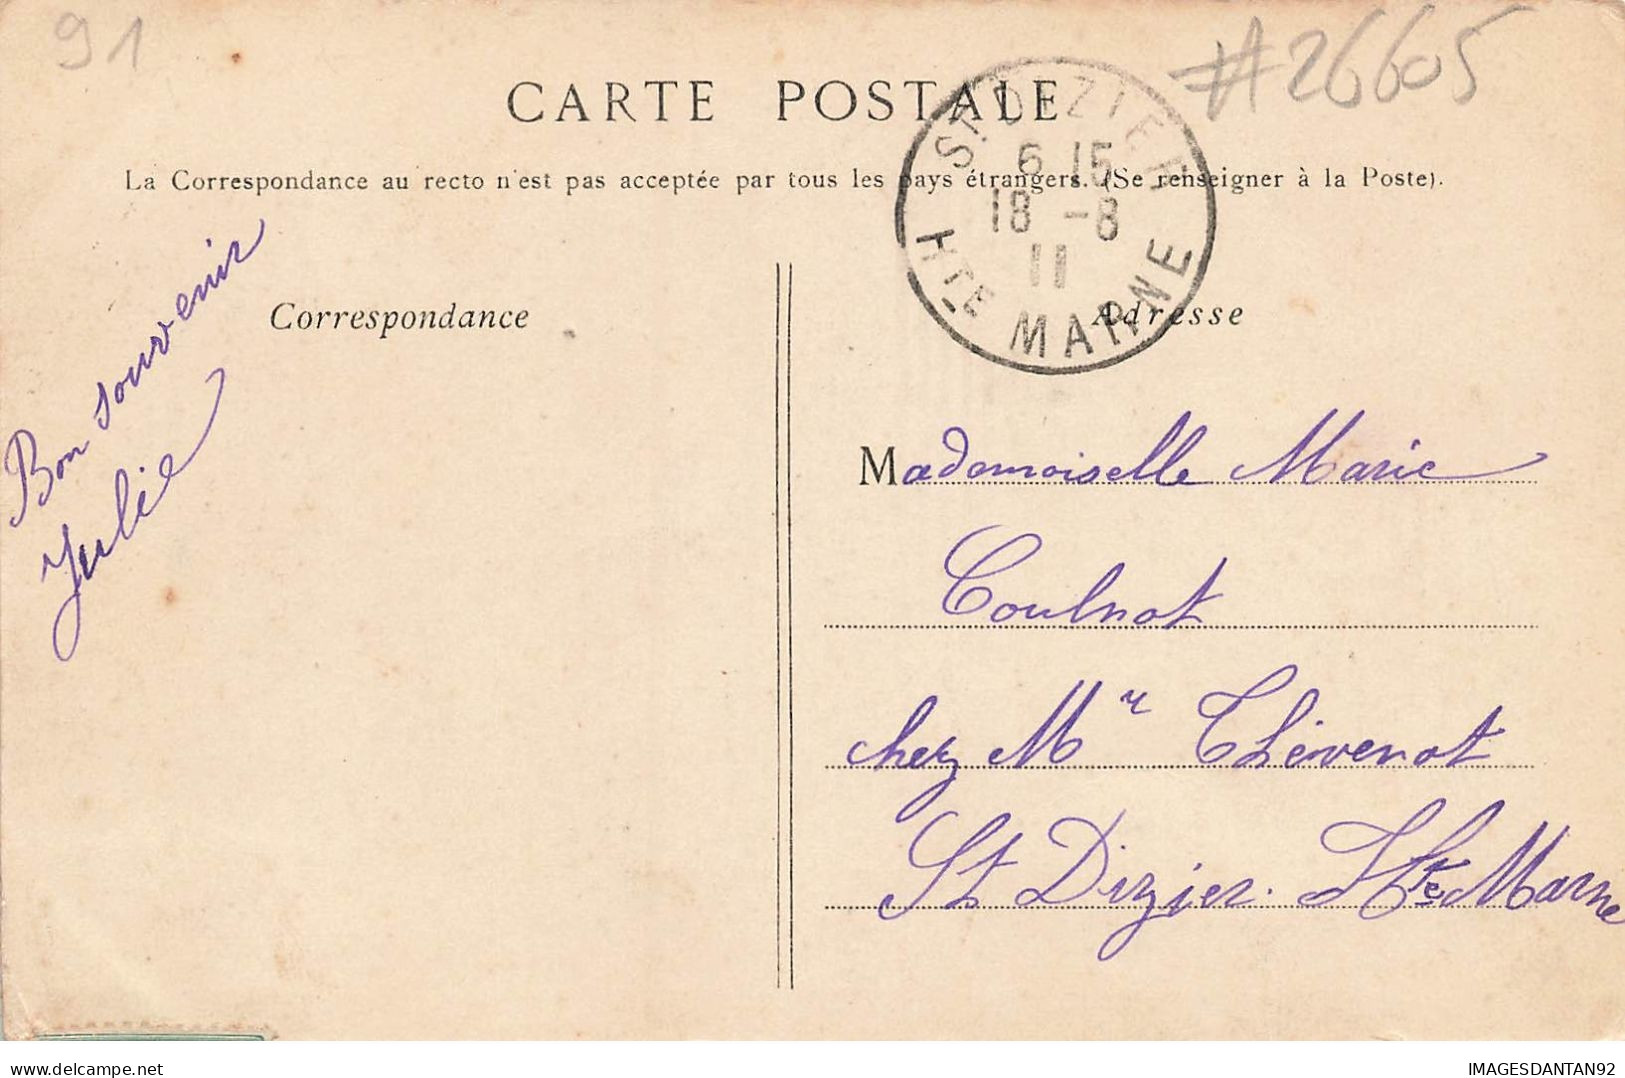 91
#26605
CARTE POSTALE
La Correspondance au recto n'est pas acceptée par tous les pays étrangers. (Se renseigner à la Poste).
ST DIZIER
6 15
18 -8
11
HTE MARNE
Correspondance
Adresse
Bon souvenir
Julie
Mademoiselle Marie
Coulnot
chez Mr Thévenot
St Dizier. Hte Marne
delcampe.net
IMAGESDANTAN92